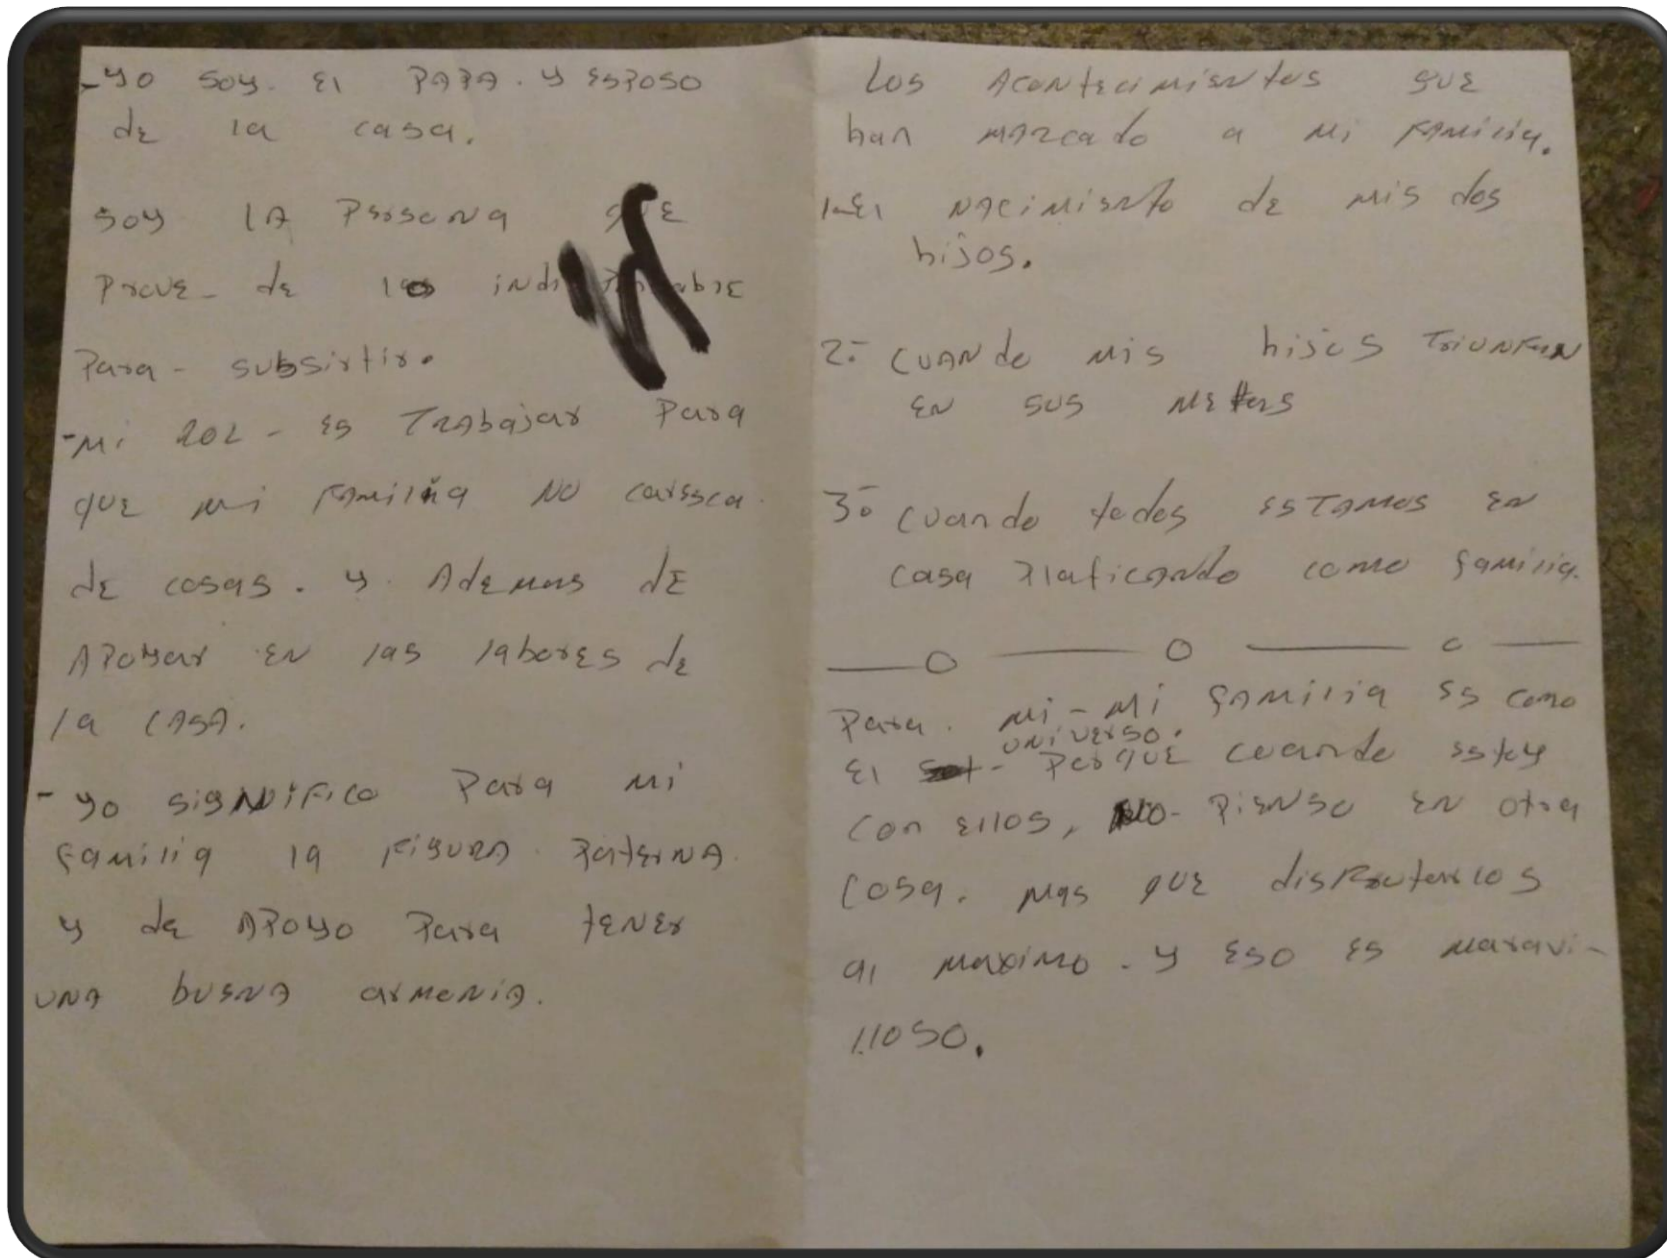 - Yo soy. El PAPA. y Esposo
de la casa.
Soy LA Persona que
Prove- de lo indispensable
Para - subsirtir.
- Mi ROL - es TRAbajar Para
que mi familia no caresca.
de cosas. y. Ademas de
Apoyar en las labores de
la CASA.
- Yo significo Para mi
familia la figura Paterna.
y de Apoyo Para tener
una buena armonia.
Los Acontecimientos que
han marcado a mi familia.
1- El nacimiento de mis dos
hijos.
2.- Cuando mis hijos Triunfan
en sus metas
3.- Cuando todos estamos en
casa Platicando como familia.
Para. mi - mi familia es como
universo.
El - Porque cuando estoy
con ellos, No - Pienso en otra
cosa. mas que disfrutarlos
al maximo. y eso es maravi-
lloso.